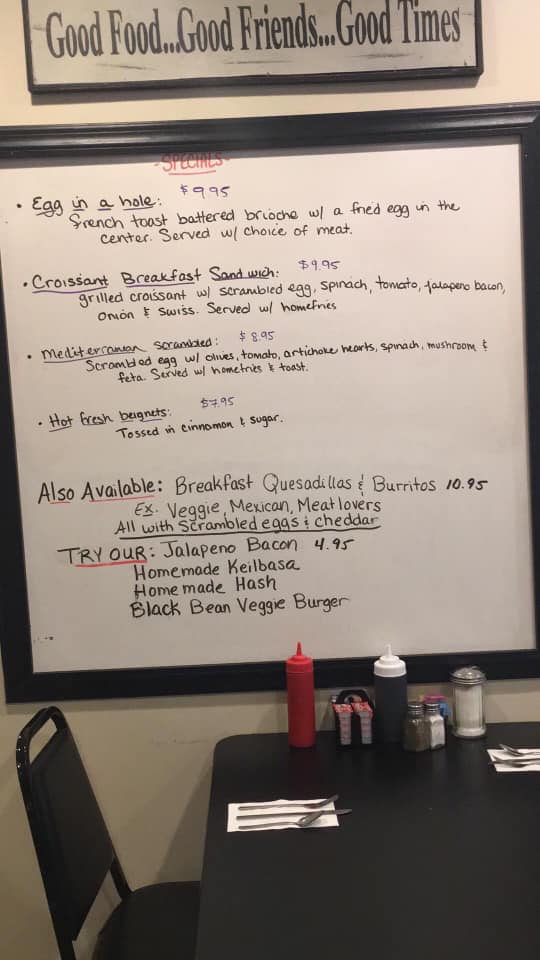 Good Food...Good Friends...Good Times
-SPECIALS-
• Egg in a hole: $9.95
french toast battered brioche w/ a fried egg in the
center. Served w/ choice of meat.
• Croissant Breakfast Sandwich: $9.95
grilled croissant w/ scrambled egg, spinach, tomato, jalapeno bacon,
onion & swiss. Served w/ homefries
• Mediterranean scrambled: $8.95
Scrambled egg w/ olives, tomato, artichoke hearts, spinach, mushroom &
feta. Served w/ homefries & toast.
• Hot fresh beignets: $7.95
Tossed in cinnamon & sugar.
Also Available: Breakfast Quesadillas & Burritos 10.95
Ex. Veggie, Mexican, Meatlovers
All with Scrambled eggs & cheddar
TRY OUR: Jalapeno Bacon 4.95
Homemade Keilbasa
Homemade Hash
Black Bean Veggie Burger